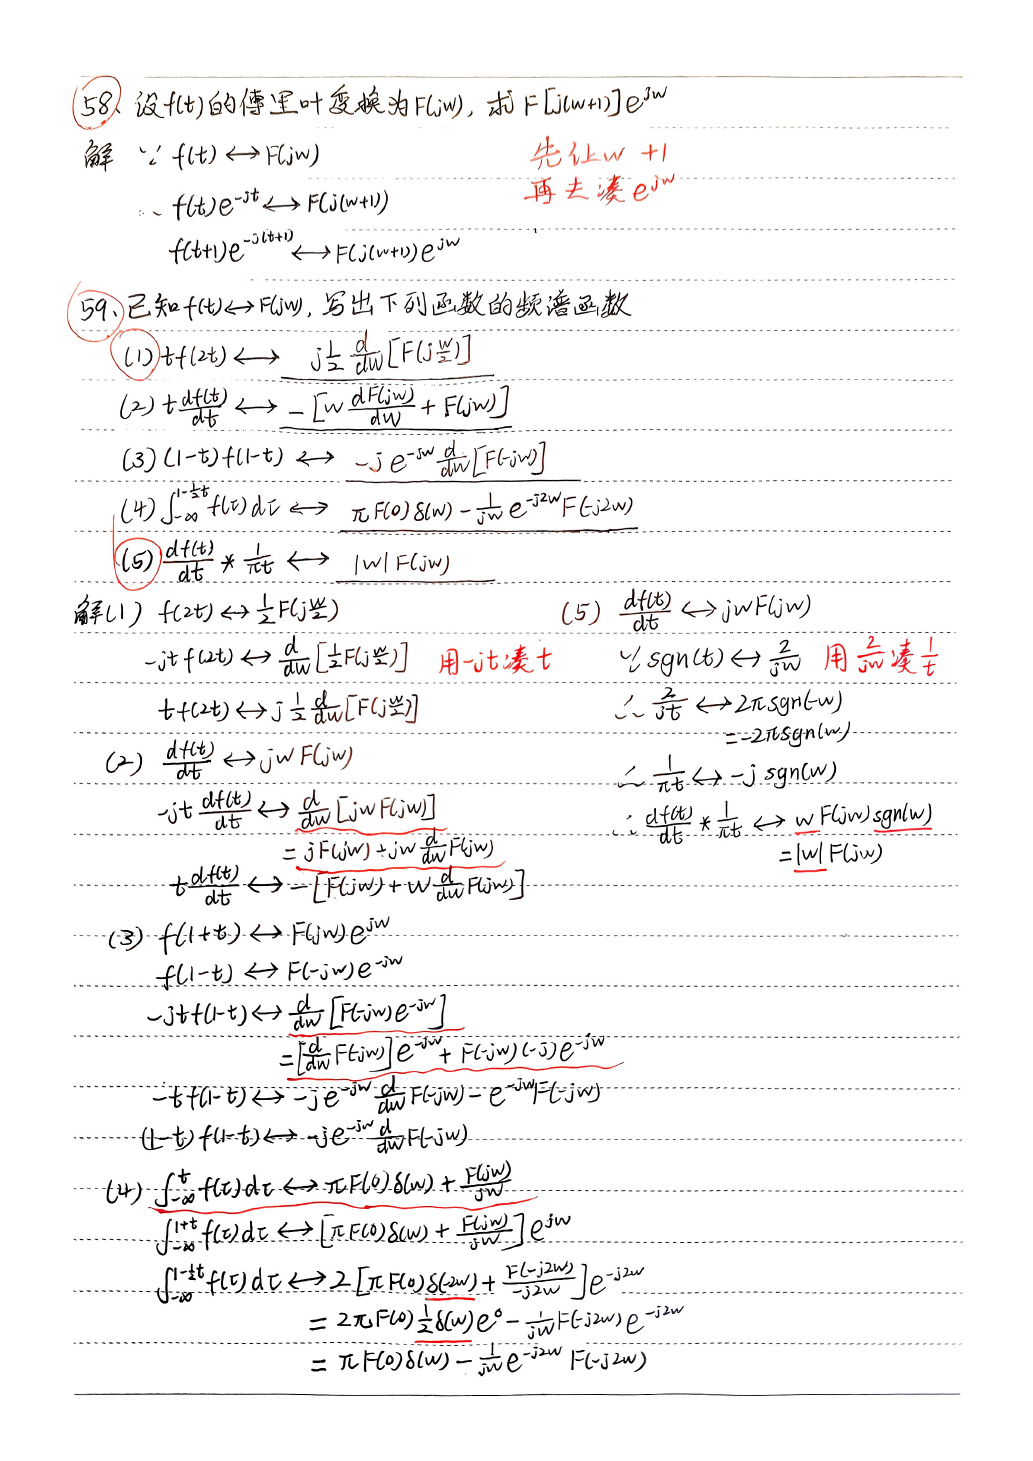 58、设f(t)的傅里叶变换为F(jw), 求F[j(w+1)]e^{jw}
解 ∵ f(t)↔F(jw)
先让w +1
再去凑e^{jw}
∴ f(t)e^{-jt}↔F(j(w+1))
f(t+1)e^{-j(t+1)}↔F(j(w+1))e^{jw}
59、已知f(t)↔F(jw), 写出下列函数的频谱函数
(1) tf(2t)↔ j\frac{1}{2}\frac{d}{dw}[F(j\frac{w}{2})]
(2) t\frac{df(t)}{dt}↔ -[w\frac{dF(jw)}{dw}+F(jw)]
(3) (1-t)f(1-t)↔ -je^{-jw}\frac{d}{dw}[F(-jw)]
(4) ∫_{-∞}^{1-\frac{1}{2}t}f(τ)dτ↔ πF(0)δ(w)-\frac{1}{jw}e^{-j2w}F(-j2w)
(5) \frac{df(t)}{dt}*\frac{1}{πt}↔ |w|F(jw)
解(1) f(2t)↔\frac{1}{2}F(j\frac{w}{2})
-jtf(2t)↔\frac{d}{dw}[\frac{1}{2}F(j\frac{w}{2})] 用-jt凑t
tf(2t)↔j\frac{1}{2}\frac{d}{dw}[F(j\frac{w}{2})]
(2) \frac{df(t)}{dt}↔jwF(jw)
-jt\frac{df(t)}{dt}↔\frac{d}{dw}[jwF(jw)]
=jF(jw)+jw\frac{d}{dw}F(jw)
t\frac{df(t)}{dt}↔-[F(jw)+w\frac{d}{dw}F(jw)]
(3) f(1+t)↔F(jw)e^{jw}
f(1-t)↔F(-jw)e^{-jw}
-jtf(1-t)↔\frac{d}{dw}[F(-jw)e^{-jw}]
=[\frac{d}{dw}F(-jw)]e^{-jw}+F(-jw)(-j)e^{-jw}
-tf(1-t)↔-je^{-jw}\frac{d}{dw}F(-jw)-e^{-jw}F(-jw)
(1-t)f(1-t)↔-je^{-jw}\frac{d}{dw}F(-jw)
(4) ∫_{-∞}^{t}f(τ)dτ↔πF(0)δ(w)+\frac{F(jw)}{jw}
∫_{-∞}^{1+t}f(τ)dτ↔[πF(0)δ(w)+\frac{F(jw)}{jw}]e^{jw}
∫_{-∞}^{1-\frac{1}{2}t}f(τ)dτ↔2[πF(0)δ(-2w)+\frac{F(-j2w)}{-j2w}]e^{-j2w}
=2πF(0)\frac{1}{2}δ(w)e^{0}-\frac{1}{jw}F(-j2w)e^{-j2w}
=πF(0)δ(w)-\frac{1}{jw}e^{-j2w}F(-j2w)
(5) \frac{df(t)}{dt}↔jwF(jw)
∵sgn(t)↔\frac{2}{jw} 用\frac{2}{jw}凑\frac{1}{t}
∴\frac{2}{jt}↔2πsgn(-w)
=-2πsgn(w)
∴\frac{1}{πt}↔-jsgn(w)
∴\frac{df(t)}{dt}*\frac{1}{πt}↔wF(jw)sgn(w)
=|w|F(jw)